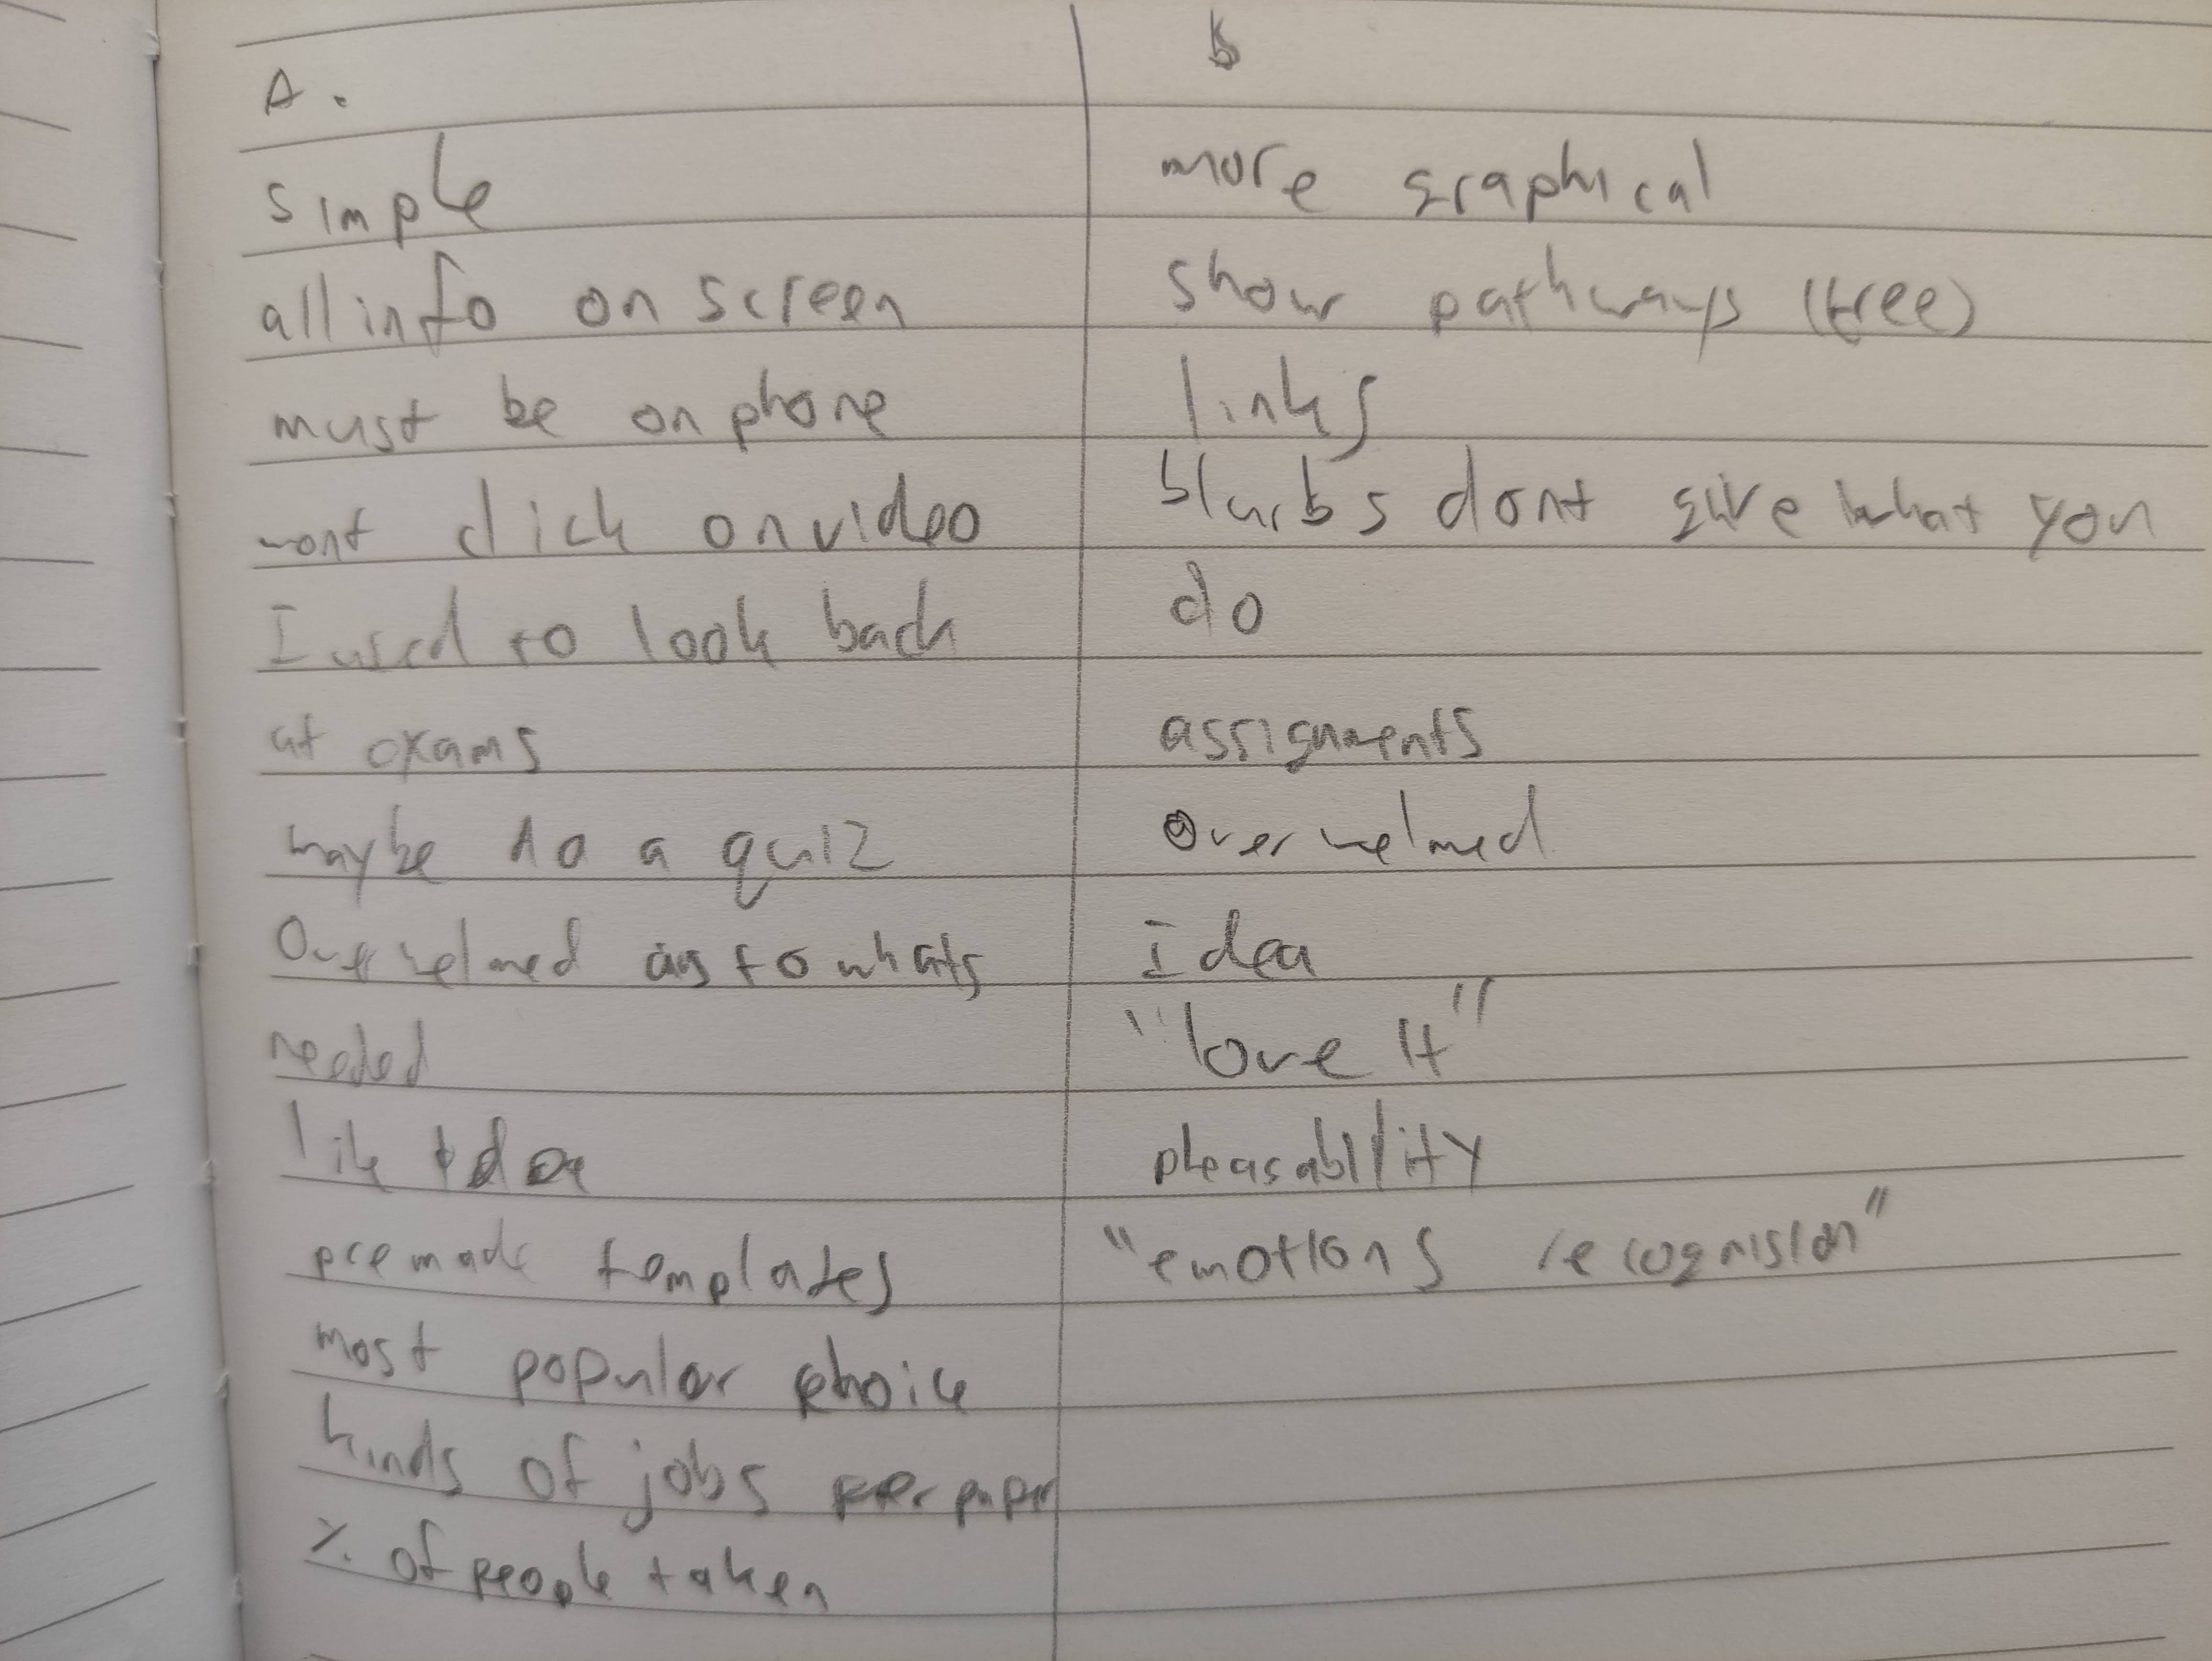 A.
simple
all info on screen
must be on phone
wont click on video
I used to look back
at exams
maybe do a quiz
Overwelmed as to whats
needed
like idea
premade templates
most popular choice
kinds of jobs per paper
% of people taken
b
more graphical
show pathways (tree)
links
blurbs dont give what you
do
assignments
overwelmed
Idea
"love it"
pleasability
"emotions recognision"